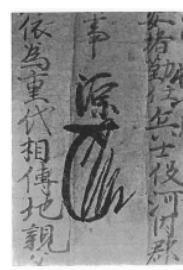 安堵勤仕兵士役河内郡
事
源
依為重代相傳地親